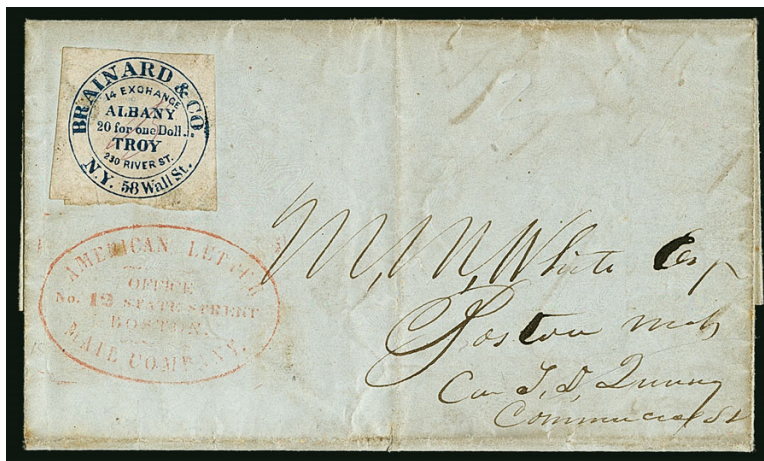 BRAINARD & CO
14 EXCHANGE
ALBANY
20 for one Doll.
TROY
230 RIVER ST.
N.Y. 58 Wall St.
AMERICAN LETTER
OFFICE
No. 12 STATE STREET
BOSTON.
MAIL COMPANY.
M, M, White Esq
Boston
J, D,
Commercial St